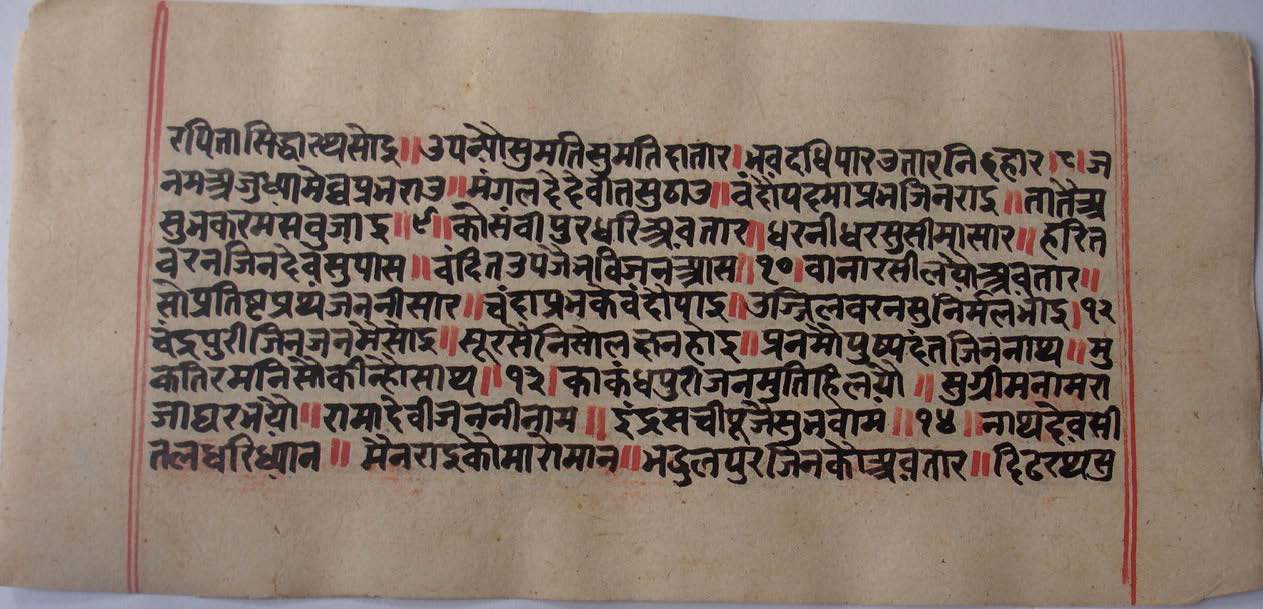 रपिता सिद्धारथ सोइ ॥ उपन्यौ सुमति सुमति दातार । भव दधि पार उतारनिहहार । ८ । ज
नम अजुध्या मेघप्रभ राउ ॥ मंगल दे देवी त सुठाउ ॥ वंदौ पदमाप्रभ जिनराइ ॥ तातै अ
सुभ करम सवु जाइ ॥ ९ ॥ कोसंवी पुर धरि अवतार ॥ धरनीधर सुसीमा सार ॥ हरित
वरन जिनदेव सुपास ॥ वंदित उपजै नविजन आस ॥ १० । वानारसी लयो अवतार ॥
सो प्रतिष्ट प्रथ जननी सार ॥ चंदाप्रभ के वंदौ पाइ ॥ उज्जिल वरन सुनिर्मल भाइ । १२
चंद्रपुरी जिन जनमे सोइ ॥ सूरसेनि सो लछन होइ ॥ प्रनमौ पुष्पदंत जिननाथ ॥ मु
कति रमनि सौ कीन्हौ साथ ॥ १३ । काकंधपुरी जनमु तिहि लयौ ॥ सुग्रीम नाम रा
जा घर भयौ ॥ रामादेवी जननी नाम ॥ इंद्र सची पूजै सुभ वाम ॥ १४ ॥ नाथ देव सी
तल धरि ध्यान ॥ मैनराइ को मारो मान ॥ भद्दुलपुर जिनकौ अवतार ॥ दिढरथ सु